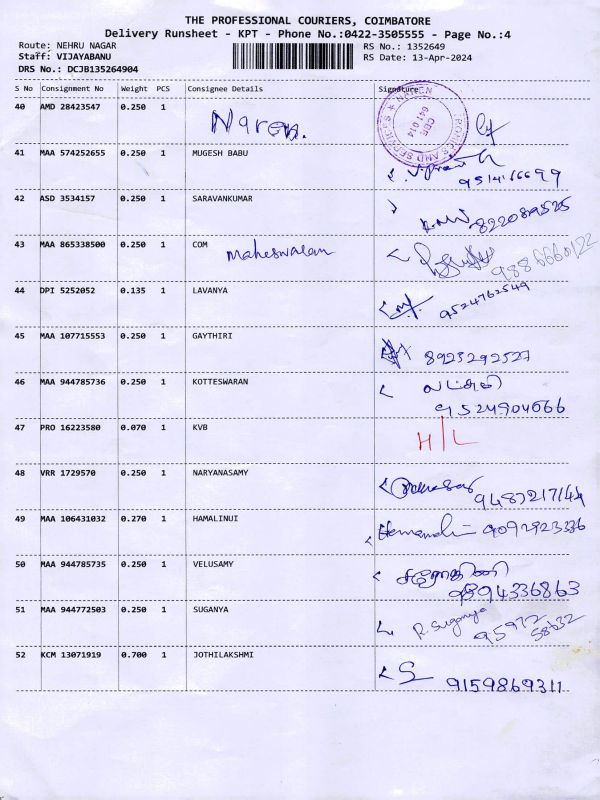 THE PROFESSIONAL COURIERS, COIMBATORE
Delivery Runsheet - KPT - Phone No.:0422-3505555 - Page No.:4
Route: NEHRU NAGAR RS No.: 1352649
Staff: VIJAYABANU RS Date: 13-Apr-2024
DRS No.: DCJB135264904
S No Consignment No Weight PCS Consignee Details Signature
40 AMD 28423547 0.250 1 Naren.
CBE
641 014
41 MAA 574252655 0.250 1 MUGESH BABU
42 ASD 3534157 0.250 1 SARAVANKUMAR
8220819525
43 MAA 865338500 0.250 1 COM Maheswaran
44 DPI 5252052 0.135 1 LAVANYA
9524762549
45 MAA 107715553 0.250 1 GAYTHIRI
8923292527
46 MAA 944785736 0.250 1 KOTTESWARAN
9524904666
47 PRO 16223580 0.070 1 KVB H/L
48 VRR 1729570 0.250 1 NARYANASAMY
9487217144
49 MAA 106431032 0.270 1 HAMALINUI
9092923336
50 MAA 944785735 0.250 1 VELUSAMY சரோஜினி
51 MAA 944772503 0.250 1 SUGANYA R. Suganya
95972
58632
52 KCM 13071919 0.700 1 JOTHILAKSHMI
9159869311